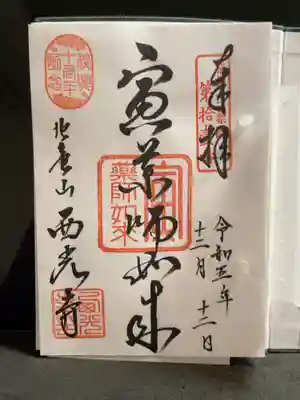 奉拝
第拾
令和五年
十二月 十二日
寅薬師如来
薬師如来
十周年
山 西光寺